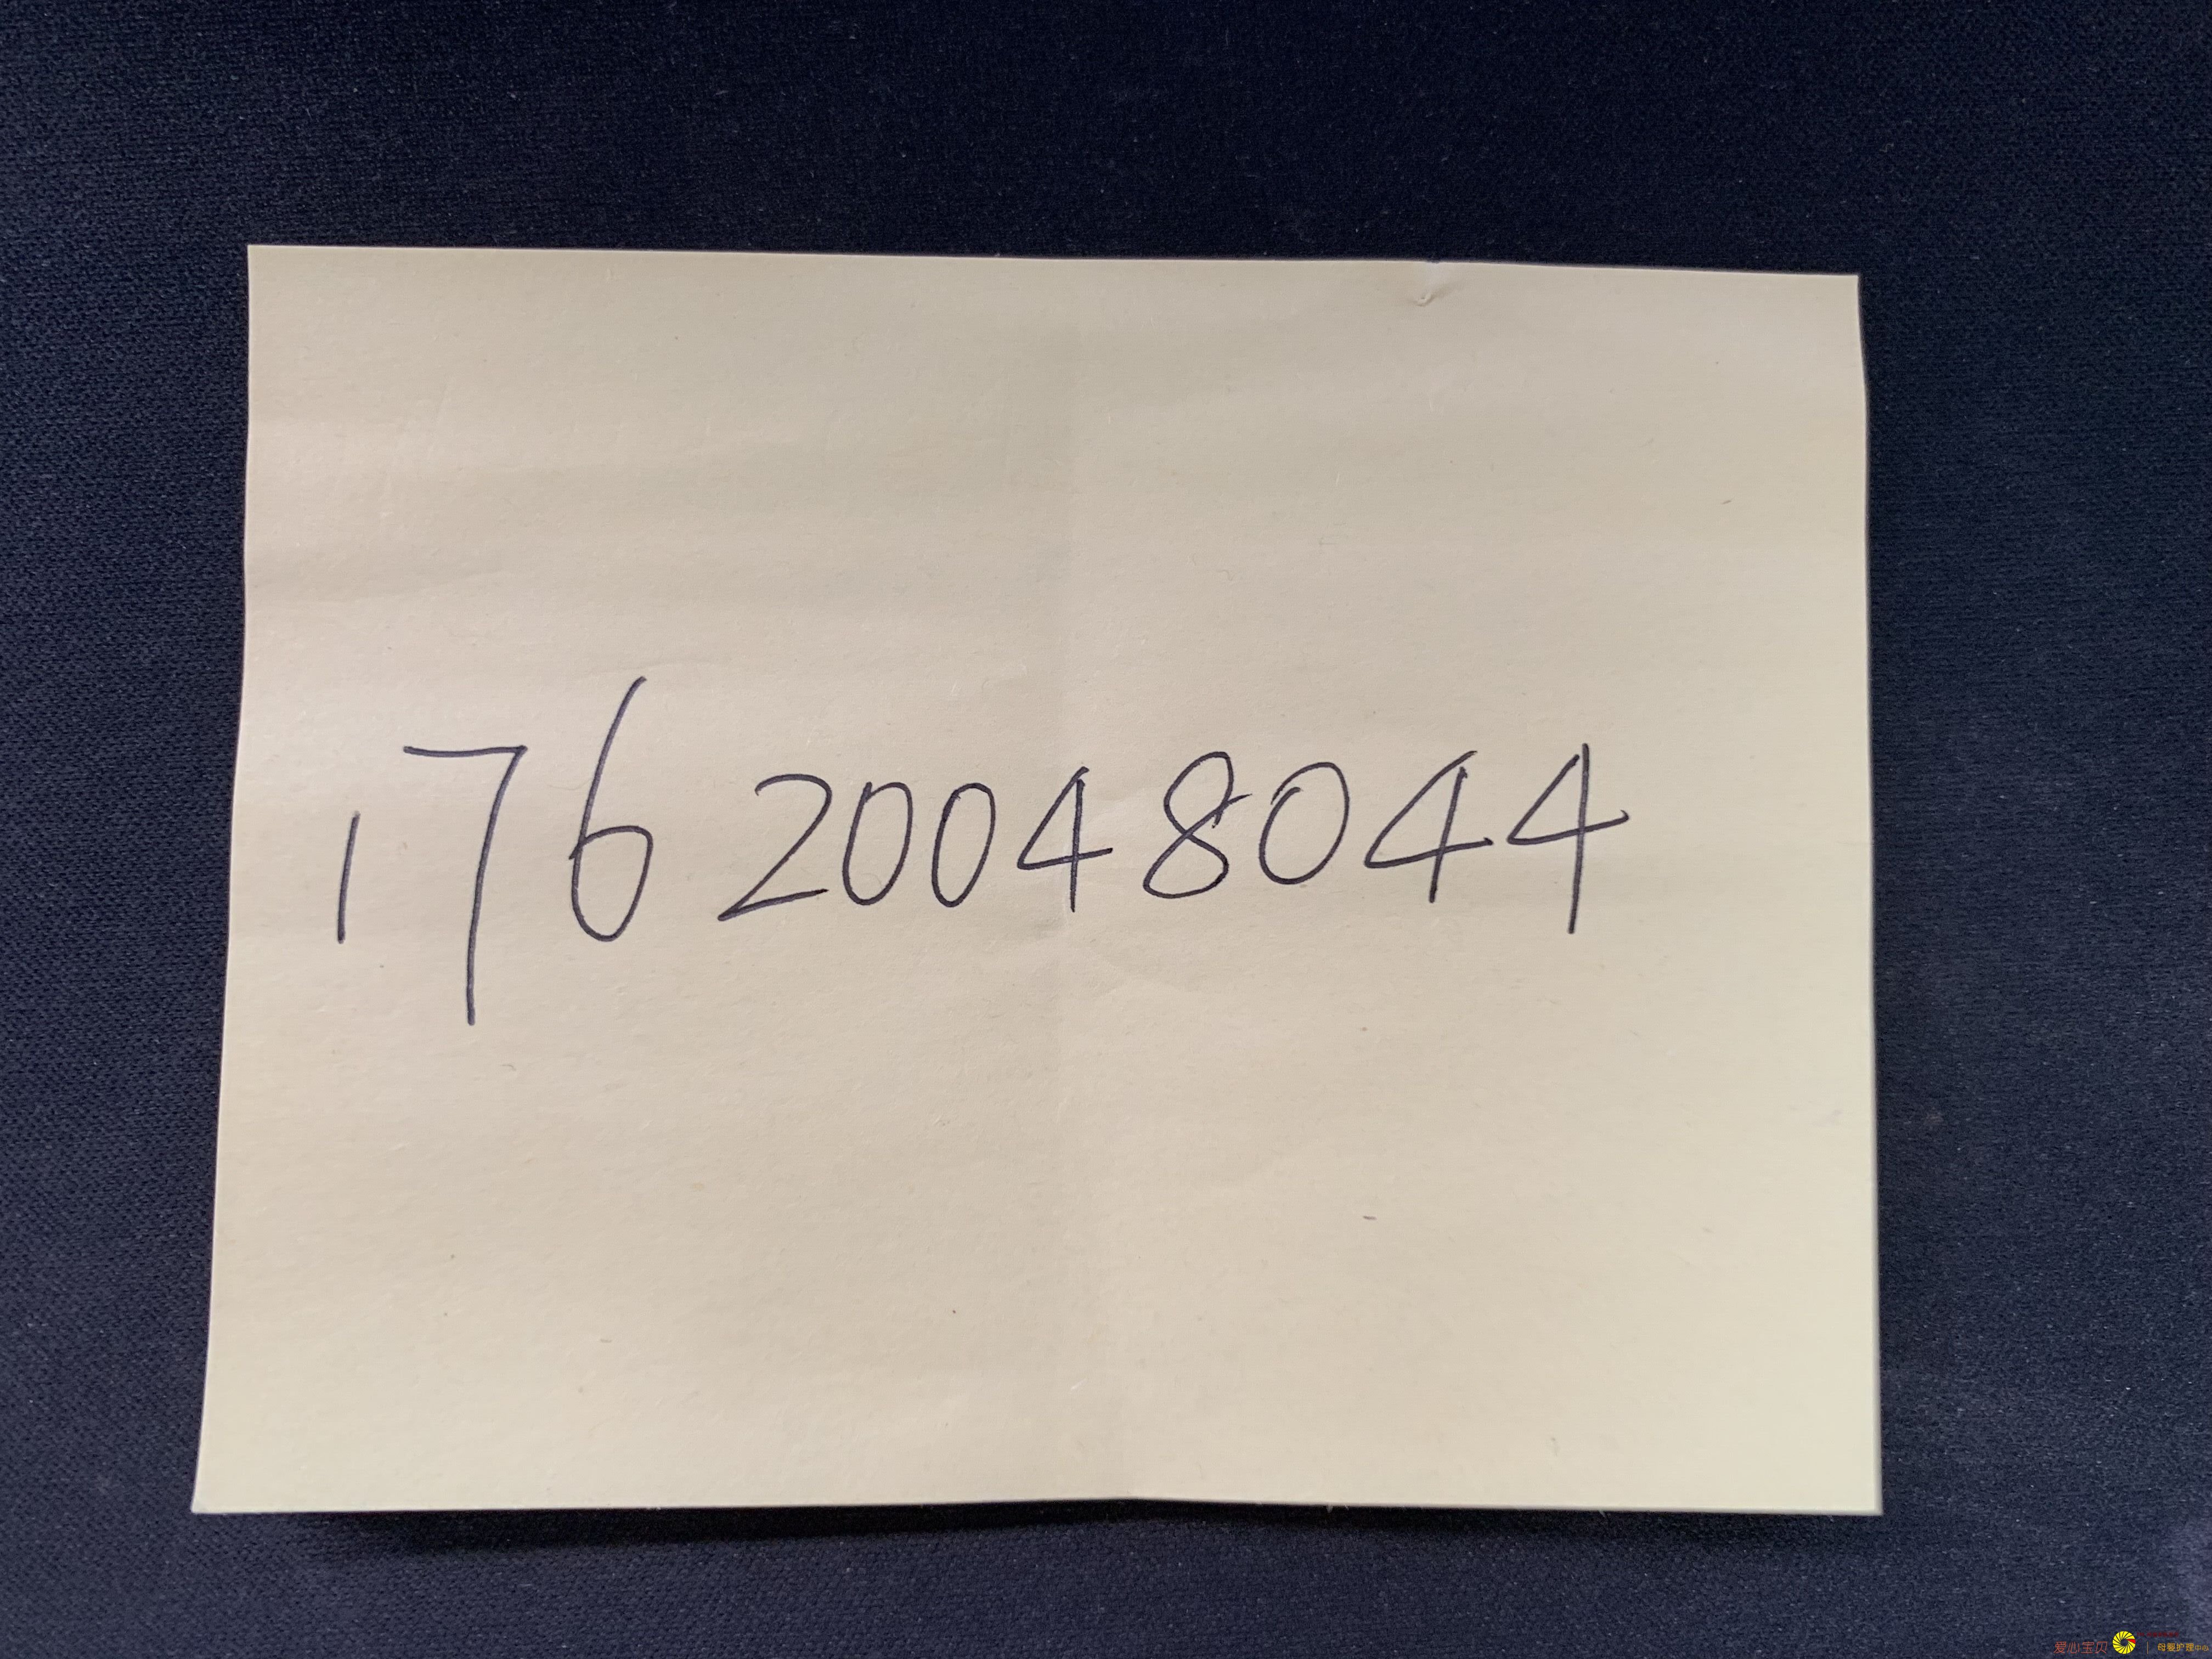 17620048044
爱心宝贝 | 母婴护理中心